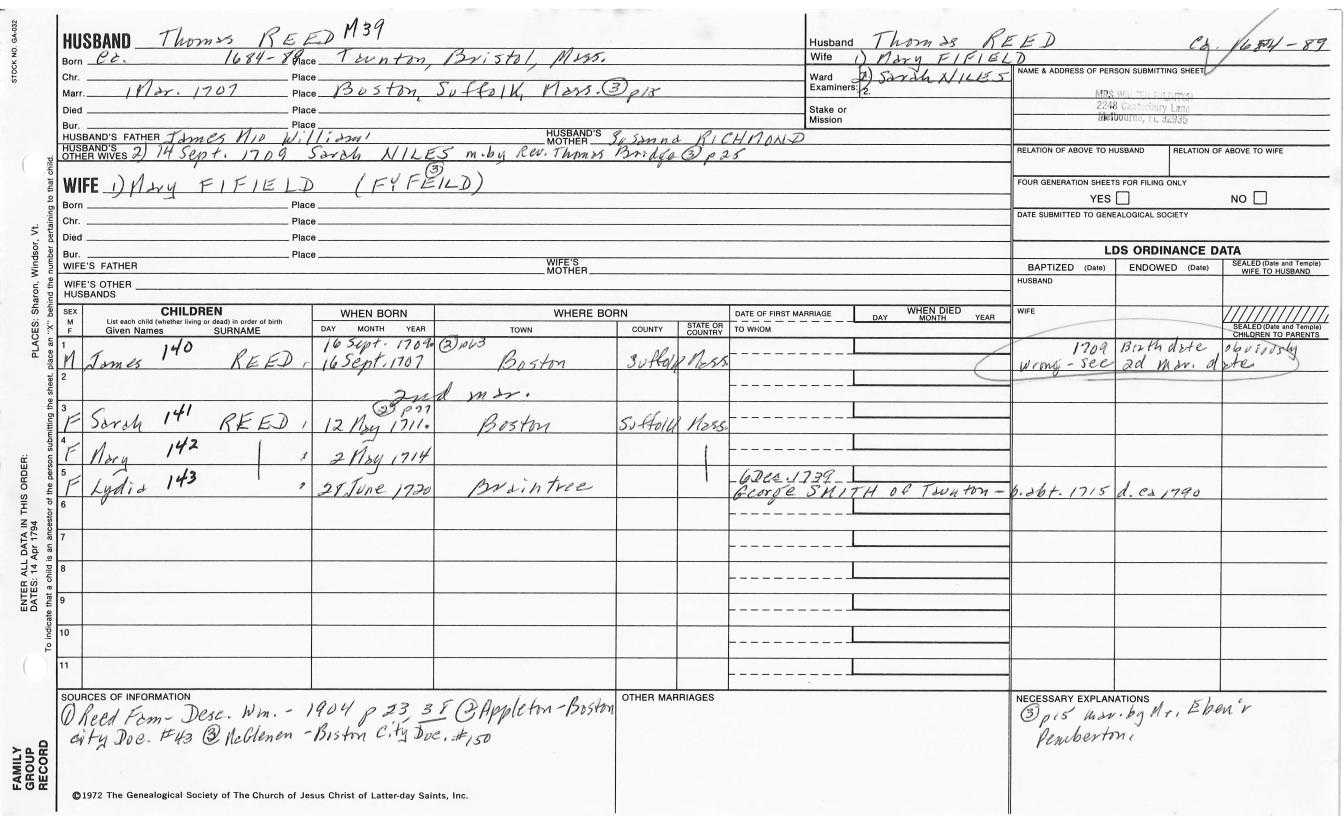 STOCK NO. GA-032
HUSBAND Thomas REED M39
Born Ca. 1684-89 Place Taunton, Bristol, Mass.
Chr. Place
Marr. 1 Mar. 1707 Place Boston, Suffolk, Mass. ③ p15
Died Place
Bur. Place
HUSBAND'S FATHER James M10 William' HUSBAND'S MOTHER Susanna RICHMOND
HUSBAND'S OTHER WIVES 2) 14 Sept. 1709 Sarah NILES m. by Rev. Thomas Bridge ③ p25
Husband Thomas REED Ca. 1684-89
Wife 1) Mary FIFIELD
2) Sarah NILES
Ward
Examiners: 1.
2.
Stake or
Mission
NAME & ADDRESS OF PERSON SUBMITTING SHEET
2248 Canterbury Lane
Melbourne, FL 32935
RELATION OF ABOVE TO HUSBAND RELATION OF ABOVE TO WIFE
FOUR GENERATION SHEETS FOR FILING ONLY
YES NO
DATE SUBMITTED TO GENEALOGICAL SOCIETY
③
WIFE 1) Mary FIFIELD (FYFEILD)
Born Place
Chr. Place
Died Place
Bur. Place
WIFE'S FATHER WIFE'S MOTHER
WIFE'S OTHER HUSBANDS
LDS ORDINANCE DATA
BAPTIZED (Date) ENDOWED (Date) SEALED (Date and Temple) WIFE TO HUSBAND
HUSBAND
WIFE
SEALED (Date and Temple) CHILDREN TO PARENTS
SEX M F
CHILDREN
List each child (whether living or dead) in order of birth
Given Names SURNAME
WHEN BORN
DAY MONTH YEAR
WHERE BORN
TOWN COUNTY STATE OR COUNTRY
DATE OF FIRST MARRIAGE
TO WHOM
WHEN DIED
DAY MONTH YEAR
1 16 Sept. 1709 ② p63
M James 140 REED 16 Sept. 1707 Boston Suffolk Mass
1709 Birth date obviously
wrong - see 2d mar. date
2
2nd mar.
3 ② p77
F Sarah 141 REED 12 May 1711 Boston Suffolk Mass
4
F Mary 142 2 May 1714
5 6 Dec. 1739
F Lydia 143 28 June 1720 Braintree George SMITH of Taunton - b. abt. 1715 d. ca 1790
6
7
8
9
10
11
SOURCES OF INFORMATION
① Reed Fam- Desc. Wm. - 1904 p 23, 38 ② Appleton-Boston
City Doc. #43 ③ McGlenen - Boston City Doc. #150
OTHER MARRIAGES
NECESSARY EXPLANATIONS
③ p15 mar. by Mr. Eben'r
Pemberton.
©1972 The Genealogical Society of The Church of Jesus Christ of Latter-day Saints, Inc.
ENTER ALL DATA IN THIS ORDER:
DATES: 14 Apr 1794
PLACES: Sharon, Windsor, Vt.
To indicate that a child is an ancestor of the person submitting the sheet, place an "X" behind the number pertaining to that child.
FAMILY
GROUP
RECORD